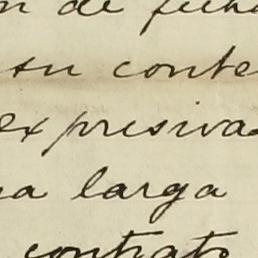 n de fech
su conte
expresiva
a larga
contrato